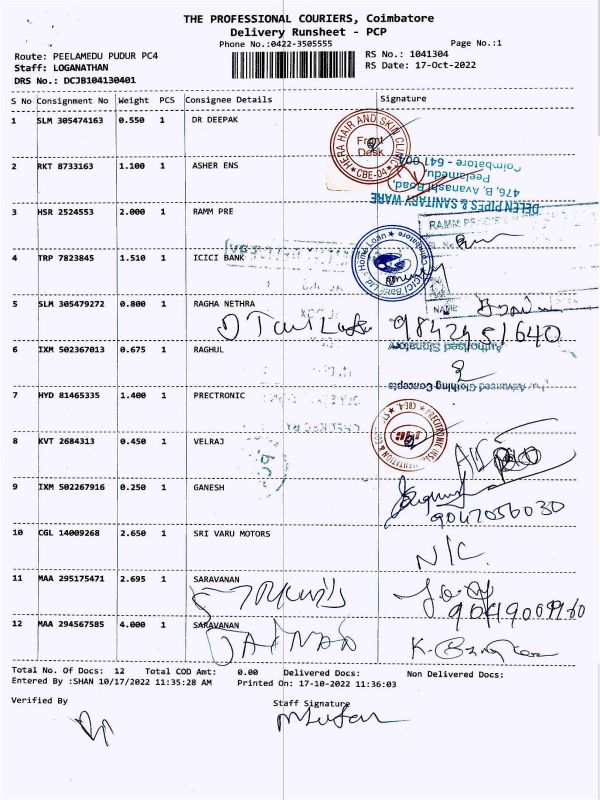 THE PROFESSIONAL COURIERS, Coimbatore
Delivery Runsheet - PCP
Phone No.:0422-3505555
Page No.:1
Route: PEELAMEDU PUDUR PC4
RS No.: 1041304
Staff: LOGANATHAN
RS Date: 17-Oct-2022
DRS No.: DCJB104130401
S No Consignment No Weight PCS Consignee Details Signature
1 SLM 305474163 0.550 1 DR DEEPAK
HERA HAIR AND SKIN CLINIC
Front Desk
*CBE-04*
2 RKT 8733163 1.100 1 ASHER ENS
DELEN PIPES & SANITARY WARE
476, B. Avanashi Road,
Peelamedu,
Coimbatore - 641 004
3 HSR 2524553 2.000 1 RAMM PRE
4 TRP 7823845 1.510 1 ICICI BANK
ICICI Bank Ltd. Home Loan * Coimbatore
NAME
5 SLM 305479272 0.800 1 RAGHA NETHRA
6 IXM 502367013 0.675 1 RAGHUL
Advanced Clothing Concepts
Authorised Signatory
7 HYD 81465335 1.400 1 PRECTRONIC
8 KVT 2684313 0.450 1 VELRAJ
9 IXM 502267916 0.250 1 GANESH
9047056030
10 CGL 14009268 2.650 1 SRI VARU MOTORS
N/C
11 MAA 295175471 2.695 1 SARAVANAN
12 MAA 294567585 4.000 1 SARAVANAN
Total No. Of Docs: 12 Total COD Amt: 0.00 Delivered Docs: Non Delivered Docs:
Entered By :SHAN 10/17/2022 11:35:28 AM Printed On: 17-10-2022 11:36:03
Verified By
Staff Signature